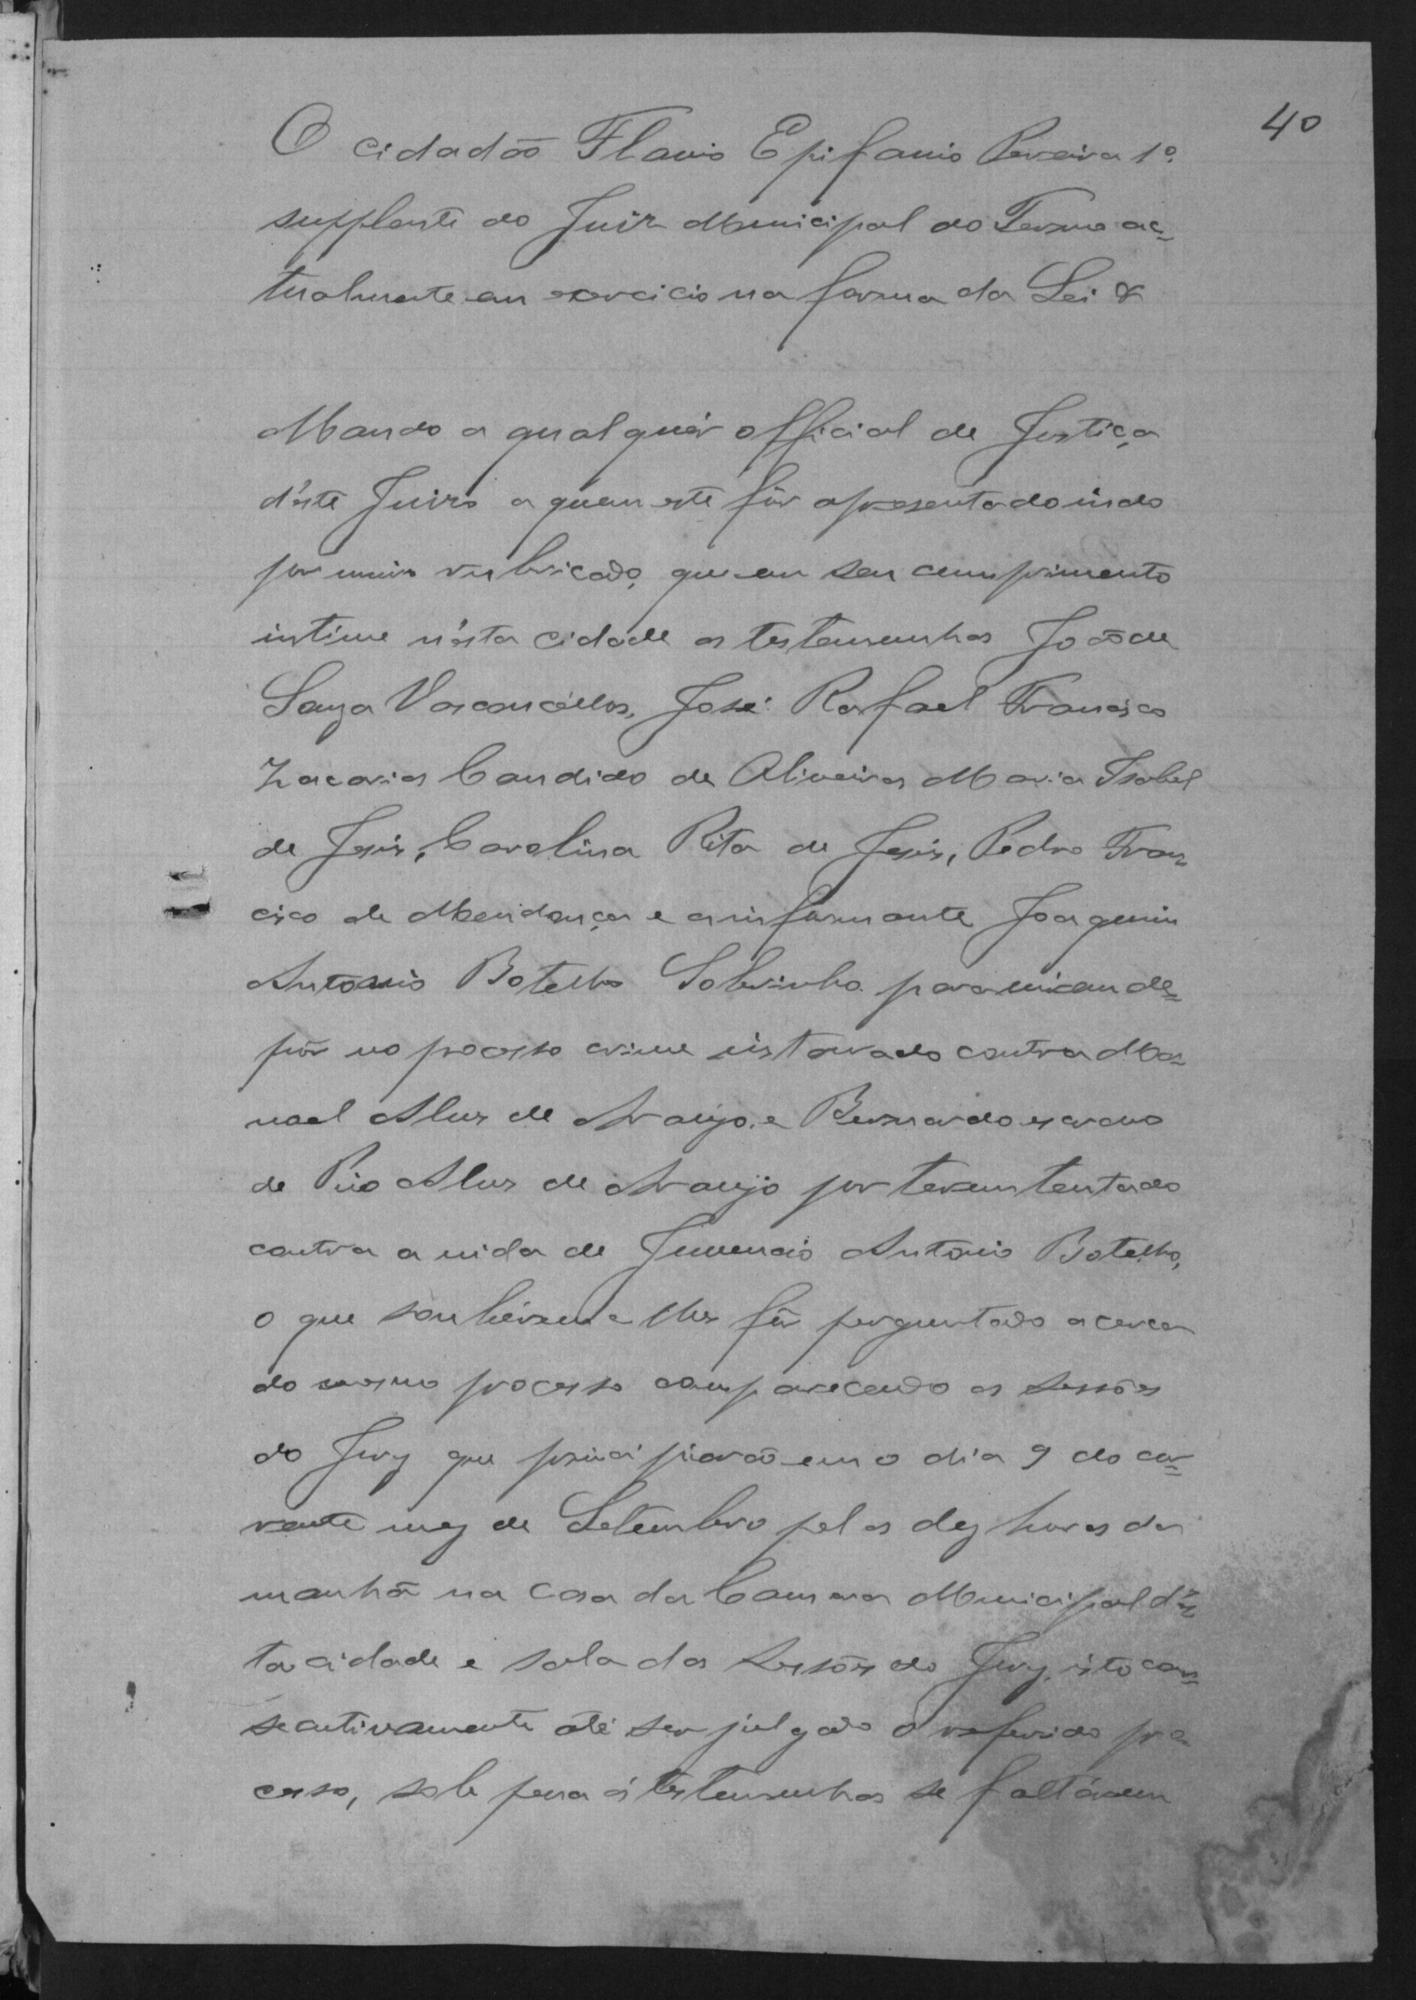 40
O cidadão Flavio Epifanio Pereira 1º
supplente do Juiz Municipal do Termo ac=
tualmente em exercicio na forma da Lei &
Mando a qualquér official de Justiça
d'éste Juizo a quem este fôr apresentado indo
por mim rubricado, que em seu cumprimento
intime n'ésta cidade as testemunhas João de
Souza Vasconcéllos, José Rafael Francisco
Zacarias Candido de Oliveira Maria Isabel
de Jesus, Carolina Rita de Jesus, Pedro Fran=
cisco de Mendonça e o informante Joaquim
Antonio Botelho Sobrinho para virem de=
pôr no processo crime instaurado contra Ma=
noel Alves de Araujo e Bernardo escravo
de Pio Alves de Araujo por terem tentado
contra a vida de Juvencio Antonio Botelho,
o que soubérem e lhes fôr perguntado acerca
do mesmo processo comparecendo as sessões
do Jury que principiarão em o dia 9 do cor=
rente mez de Setembro pelas dez horas da
manhã na casa da Camara Municipal d'és=
ta cidade e sala das Sessões do Jury, isto con=
secutivamente até ser julgado o referido pro
cesso, sob pena ás testemunhas se faltárem